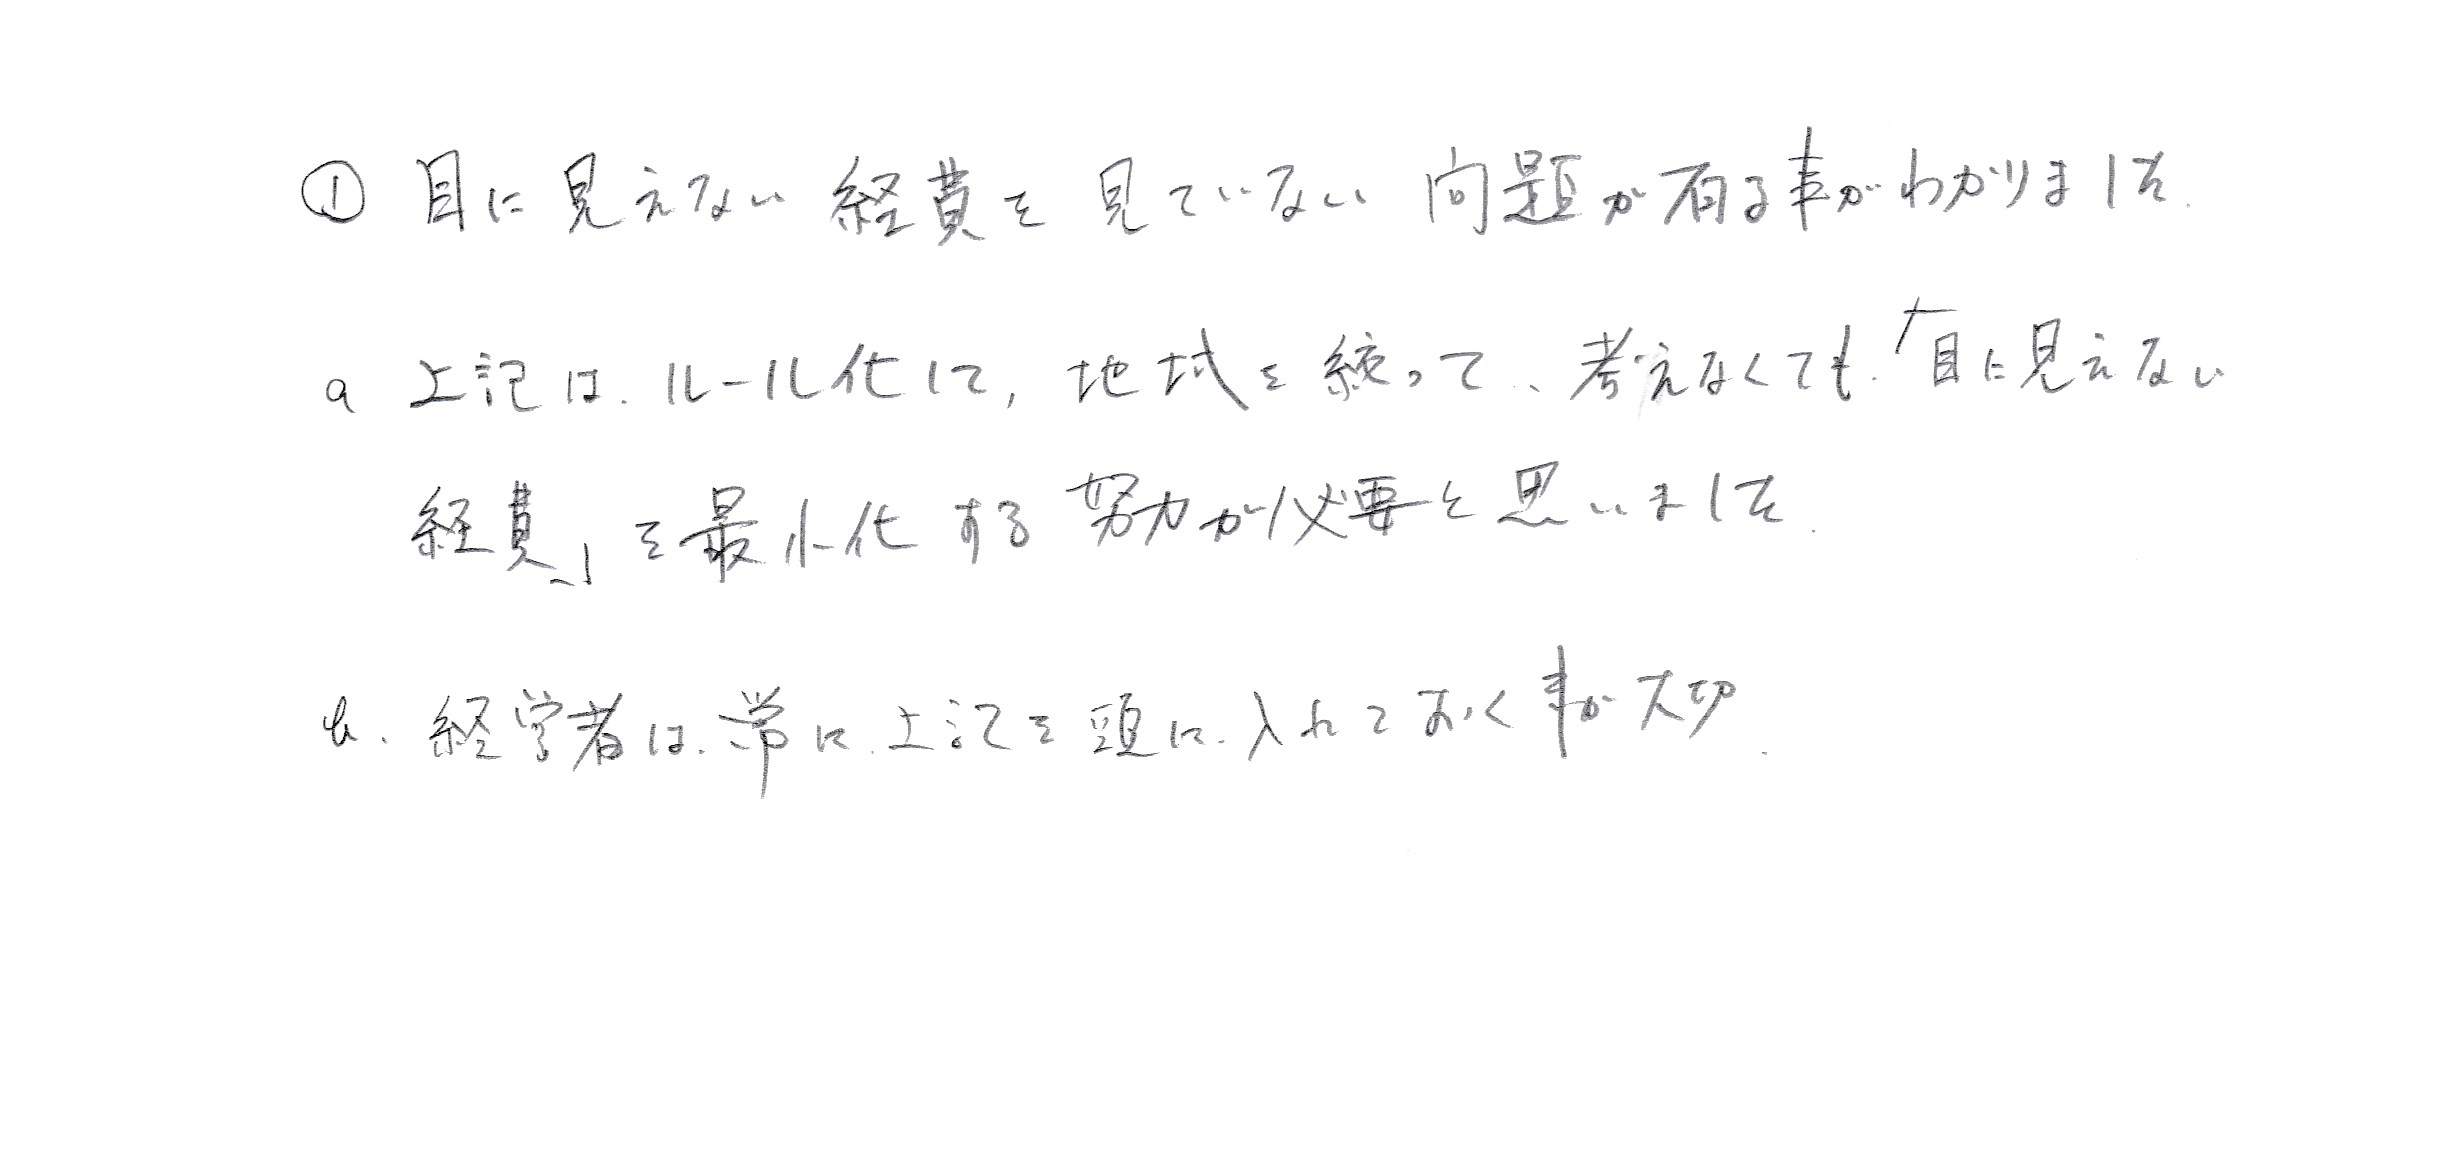 ① 目に見えない経費を見ていない問題が有る事がわかりました.
a 上記は. ルール化して, 地域を絞って、考えなくても.「目に見えない
経費」を最小化する努力が必要と思いました.
b. 経営者は. 常に. 上記を頭に. 入れておく事が大切.